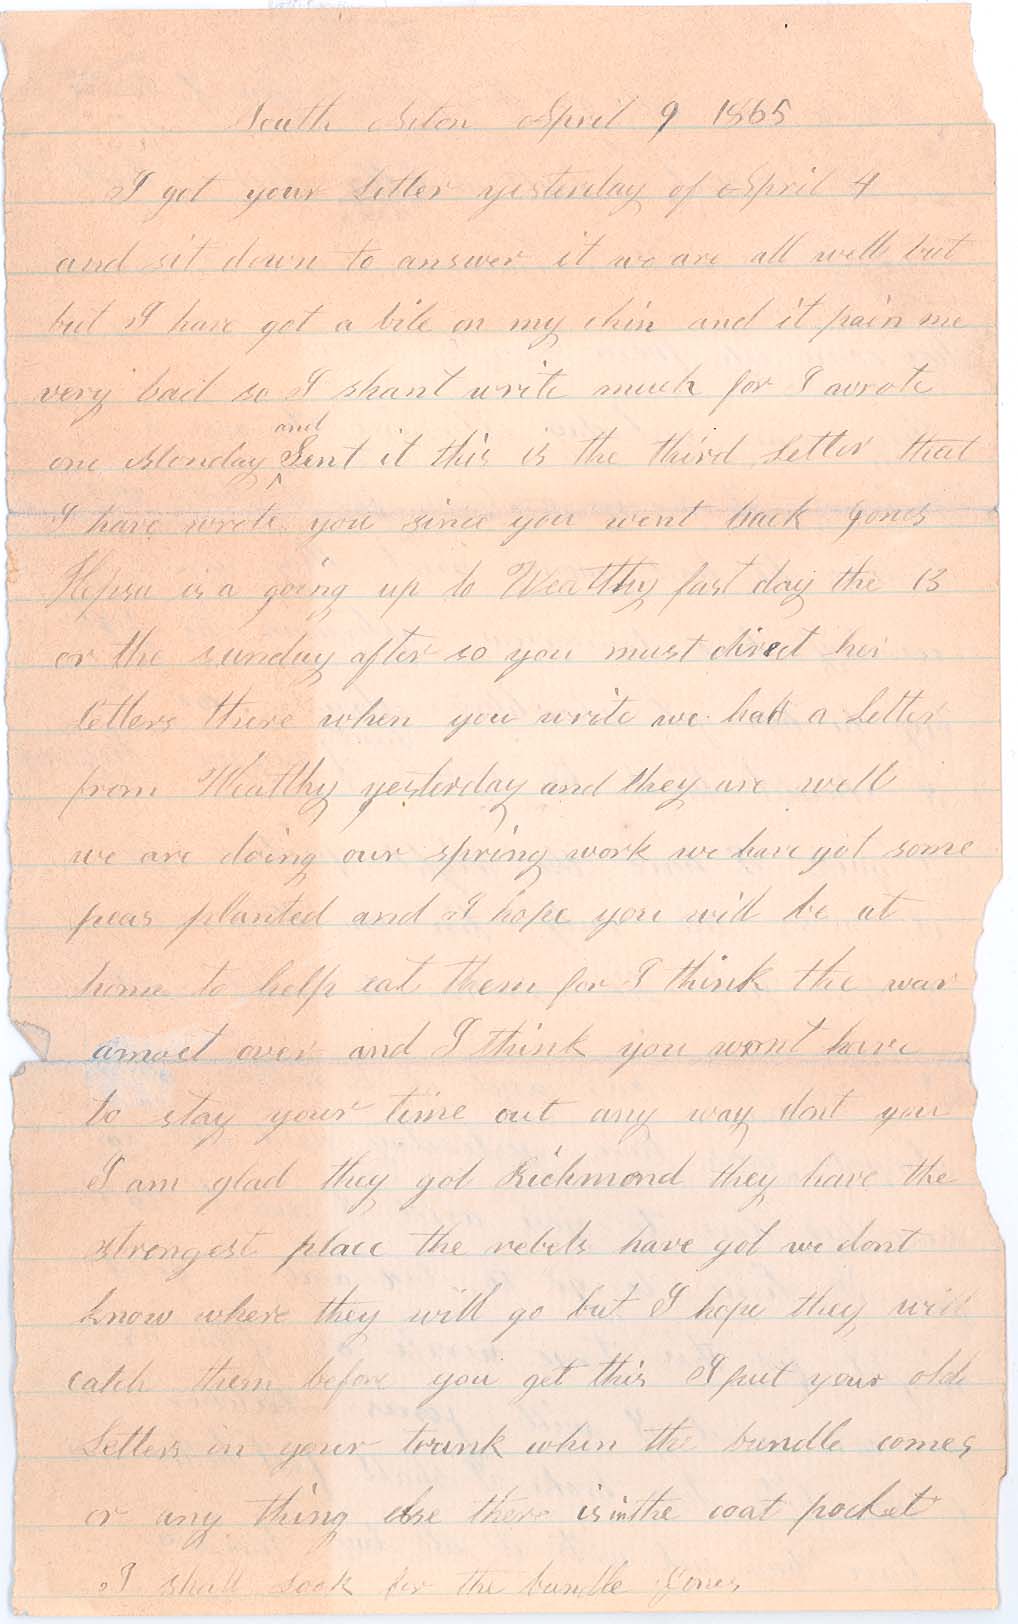 South Acton April 9 1865
I got your Letter yesterday of April 4
and sit down to answer it we are all well but
but I have got a bile on my chin and it pain me
very bad so I shant write much for I wrote
one Monday and Sent it this is the third Letter that
I have wrote you since you went back Jones
Hepsa is a going up to Wealthy fast day the 13
or the sunday after so you must direct her
letters there when you write we had a Letter
from Wealthy yesterday and they are well
we are doing our spring work we have got some
peas planted and I hope you will be at
home to help eat them for I think the war
amost over and I think you wont have
to stay your time out any way dont you
I am glad they got Richmond they have the
strongest place the rebels have got we dont
know where they will go but I hope they will
catch them before you get this I put your old
Letters in your trunk when the bundle comes
or any thing else there is in the coat pocket
I shall look for the bundle Jones